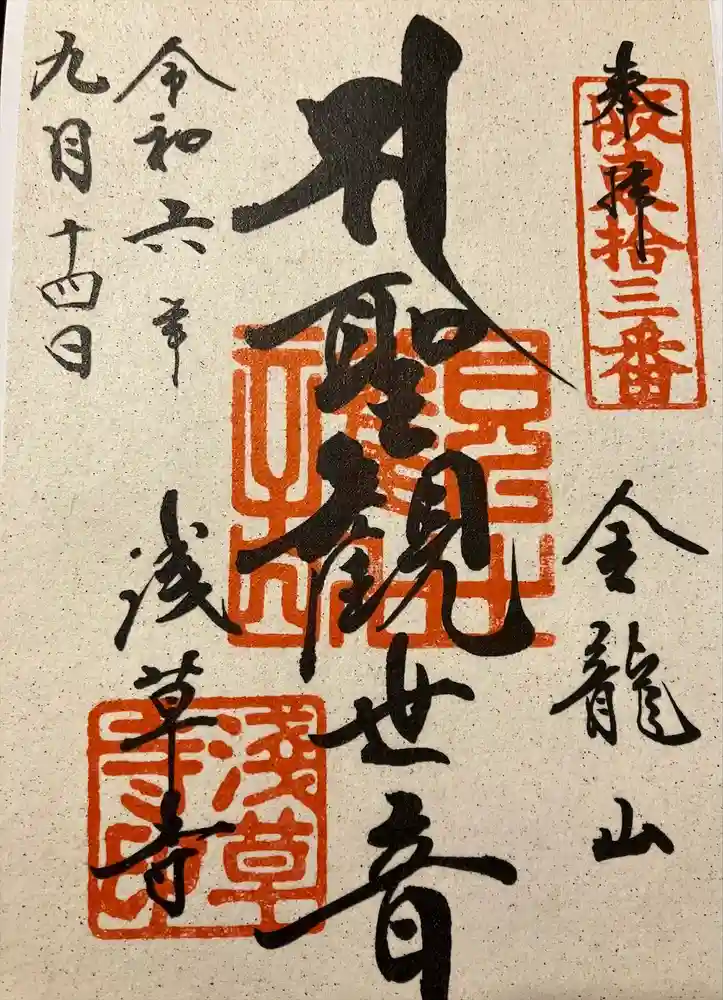 奉拝
阪東拾三番
金龍山
聖観世音
浅草寺
淺草寺印
令和六年
九月十四日